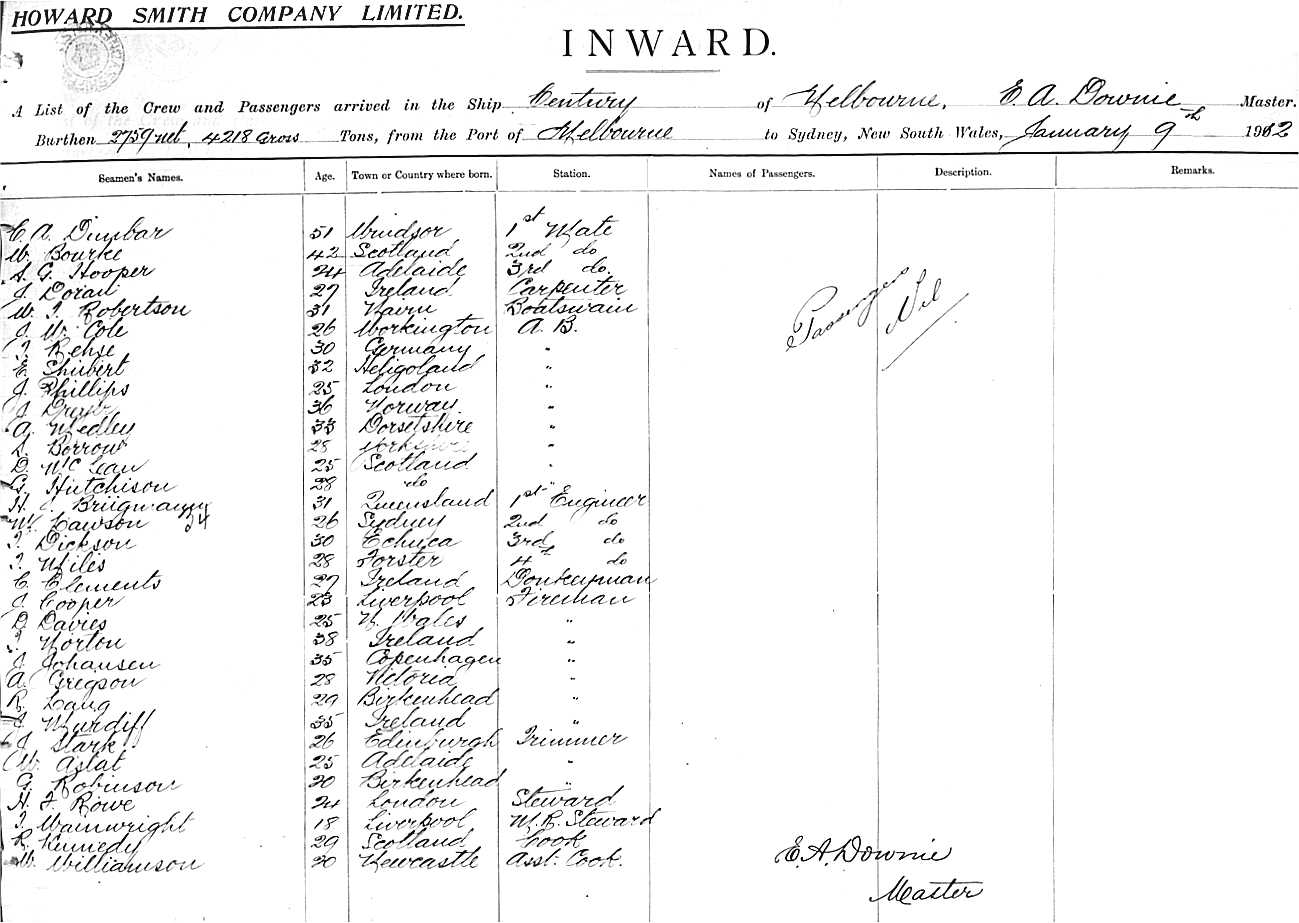 HOWARD SMITH COMPANY LIMITED.
INWARD.
A List of the Crew and Passengers arrived in the Ship Century of Melbourne, E. A. Downie Master.
Burthen 2759 net, 4218 Gross Tons, from the Port of Melbourne to Sydney, New South Wales, January 9th 1912
Seamen's Names. Age. Town or Country where born. Station. Names of Passengers. Description. Remarks.
C. A. Dunbar 51 Windsor 1st Mate
W. Bourke 42 Scotland 2nd do
A. G. Hooper 24 Adelaide 3rd do.
J. Doran 27 Ireland Carpenter
W. J. Robertson 31 Nairn Boatswain
J. W. Cole 26 Workington A. B.
Passengers Nil
J. Rehse 30 Germany "
E. Shubert 32 Heligoland "
J. Phillips 25 London "
J. 36 Norway "
A. Medley 33 Dorsetshire "
S. Borrow 28 Yorkshire "
D. McLean 25 Scotland "
G. Hutchison 28 do "
H. J. 31 Queensland 1st Engineer
W. Lawson 24 26 Sydney 2nd do
J. Dickson 30 Echuca 3rd do
J. Miles 28 Forster 4th do
C. Clements 27 Ireland Donkeyman
J. Cooper 23 Liverpool Fireman
D. Davies 25 N. Wales "
J. Norton 38 Ireland "
J. Johansen 35 Copenhagen "
A. Gregson 28 Victoria "
R. Lang 29 Birkenhead "
J. Murdiff 35 Ireland "
J. Stark 26 Edinburgh Trimmer
W. Aslat 25 Adelaide "
G. Robinson 20 Birkenhead "
H. J. Rowe 24 London Steward
J. Wainwright 18 Liverpool M. R. Steward
R. Kennedy 29 Scotland Cook
W. Williamson 20 Newcastle Asst. Cook.
E. A. Downie
Master